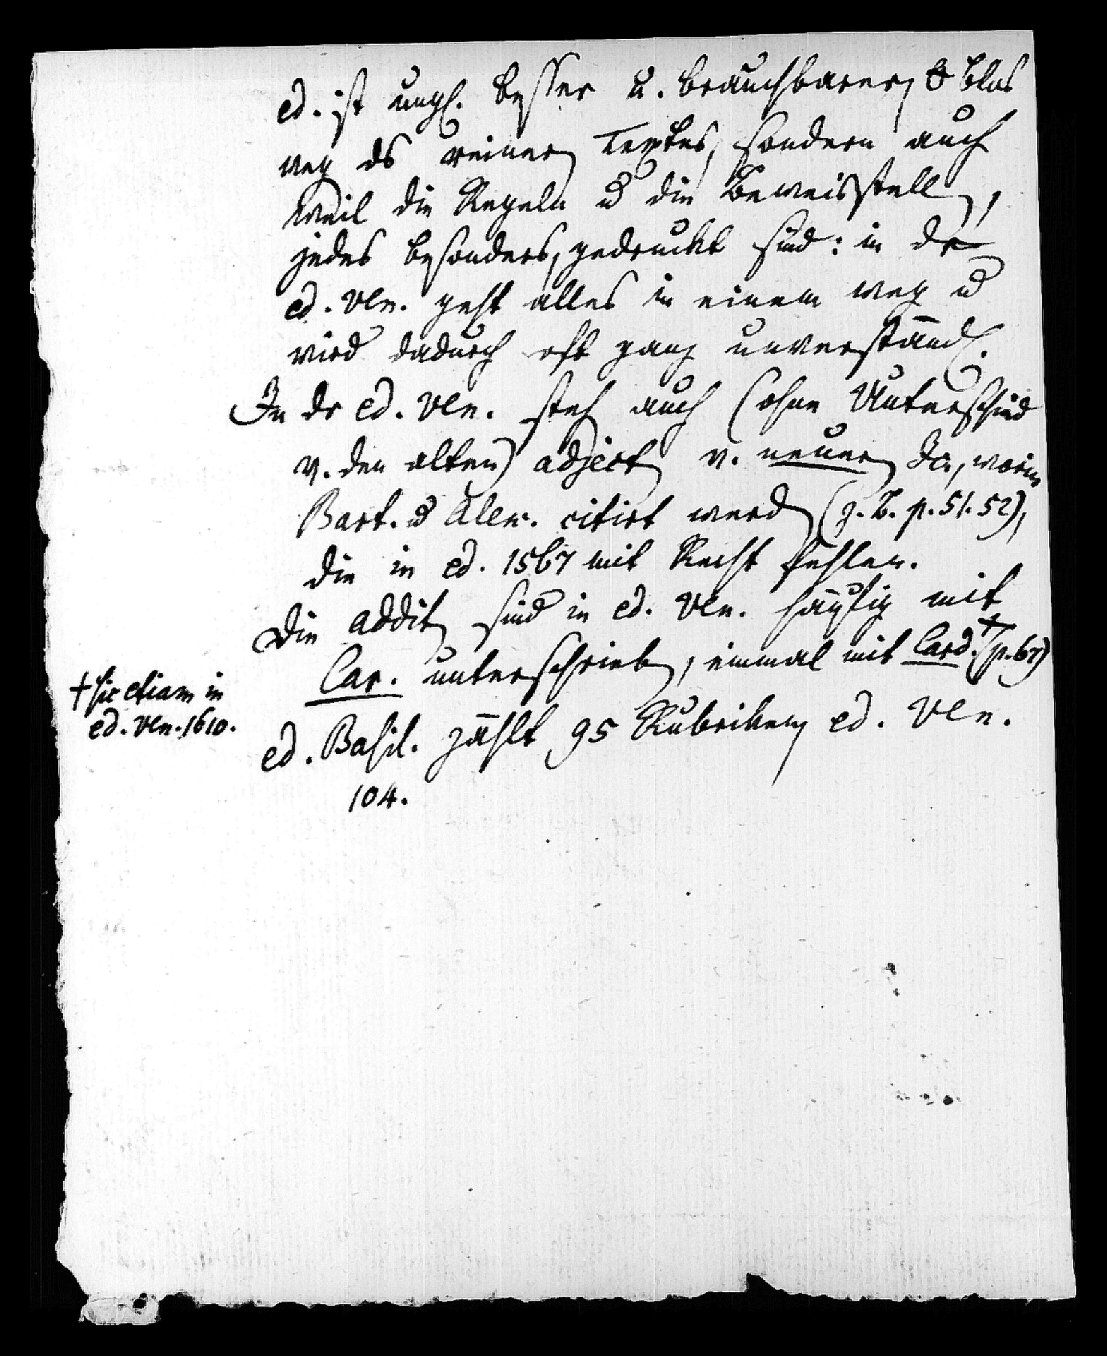 ed. ist ungl. besser u. brauchbarer, blos
weg ds reinen Textes, sondern auch
weil die Regeln u die Beweisstellen,
jedes besonders, gedruckt sind: in der
ed. Ven. geht alles in einem weg u
wird dadurch oft ganz unverständl.
In dr ed. Ven. steh auch (ohne Unterschied
v. den alten) adject v. neuen Jc, worin
Bart. u Alex. citirt werden (z. B. p. 51. 52),
die in ed. 1567 mit Recht fehlen.
Die addit sind in ed. Ven. häufig mit
Car. unterschrieben, einmal mit Card.† (p. 67)
† sic etiam in
ed. Ven. 1610.
ed. Basil. zählt 95 Rubriken, ed. Ven.
104.